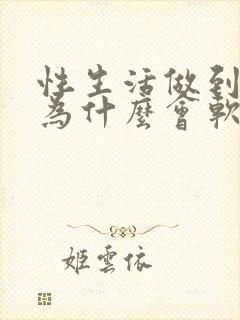 性生活做到
為什麼會軟
姬雲依